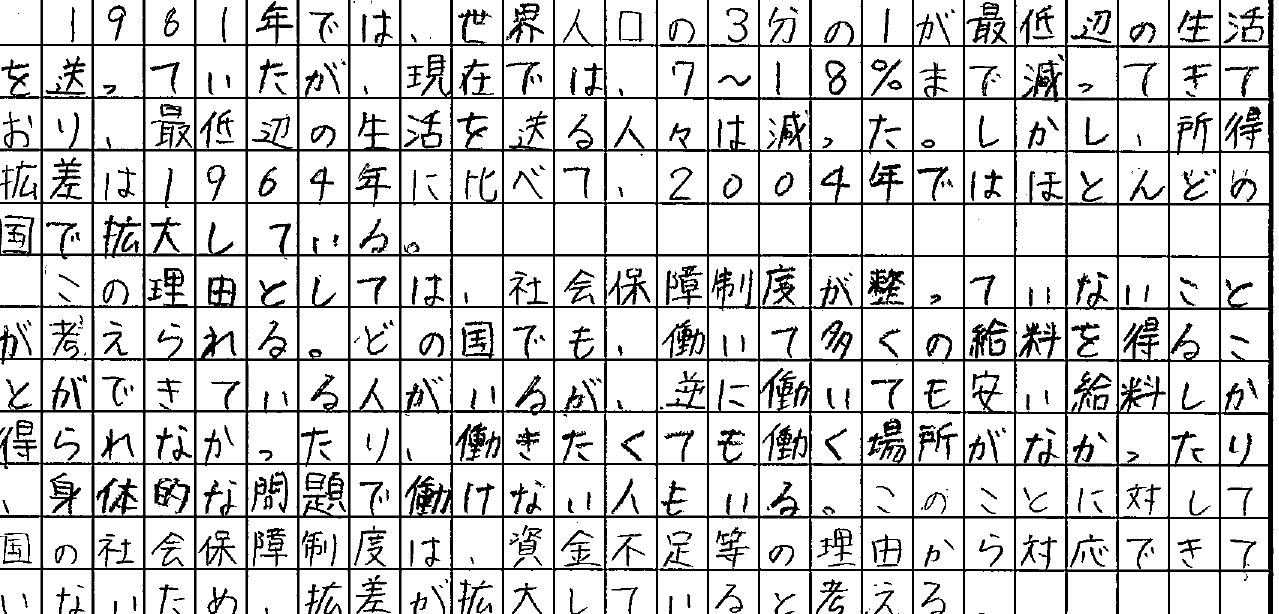 1981年では、世界人口の3分の1が最低辺の生活
を送っていたが、現在では、7～18%まで減ってきて
おり、最低辺の生活を送る人々は減った。しかし、所得
拡差は1964年に比べて、2004年ではほとんどの
国で拡大している。
この理由としては、社会保障制度が整っていないこと
が考えられる。どの国でも、働いて多くの給料を得るこ
とができている人がいるが、逆に働いても安い給料しか
得られなかったり、働きたくても働く場所がなかったり
、身体的な問題で働けない人もいる。このことに対して
国の社会保障制度は、資金不足等の理由から対応できて
いないため、拡差が拡大していると考える。